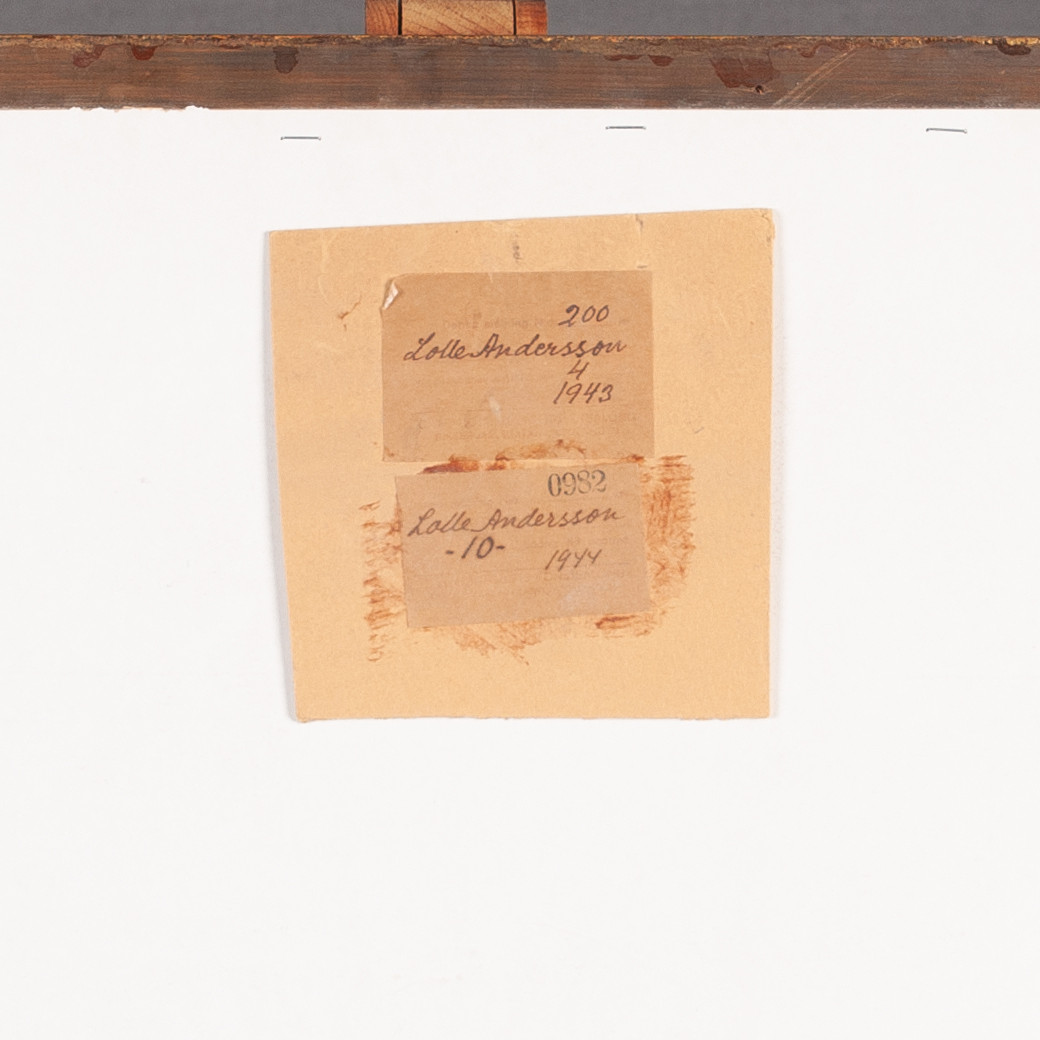 200
Lolle Andersson
4
1943
0982
Lolle Andersson
-10- 1944